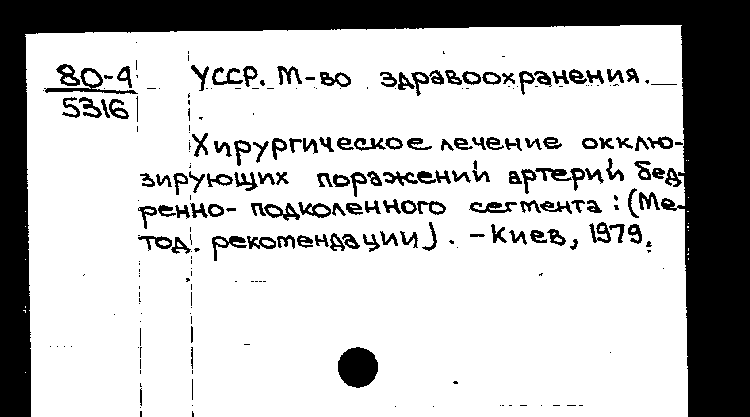 80-4 УССР. М-во здравоохранения.
5316
Хирургическое лечение окклю-
зирующих поражений артерий бед-
ренно-подколенного сегмента: (Ме-
тод. рекомендации). - Киев, 1979.